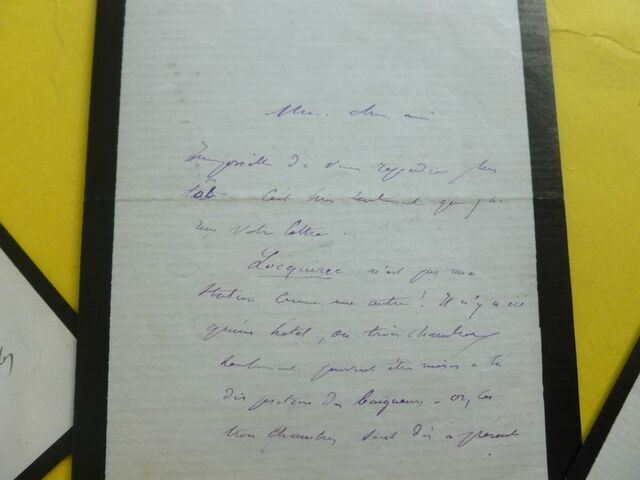 Mon cher ami
Impossible de vous répondre plus
tôt. C'est hier seulement que j'ai
reçu votre lettre.
Locquirec n'est pas une
station comme une autre! Il n'y a ici
qu'un hôtel, où trois chambres
seulement peuvent être mises à la
disposition des baigneurs - or, ces
trois chambres sont dès à présent